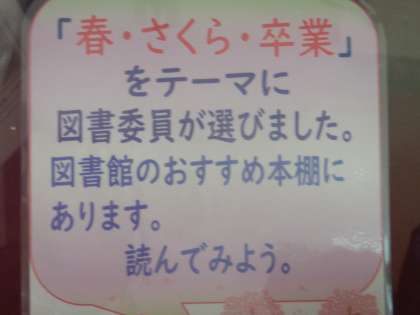 「春・さくら・卒業」
をテーマに
図書委員が選びました。
図書館のおすすめ本棚に
あります。
読んでみよう。